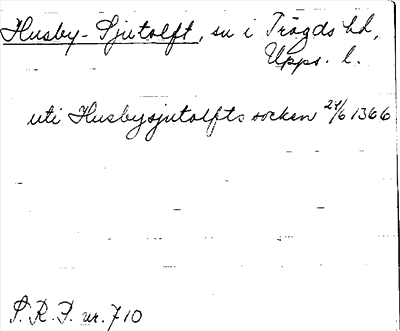 Husby-Sjutolft, sn i Trögds hd,
Upps. l.
uti Husbysjutolfts socken 24/6 1366
S. R. P. nr. 710